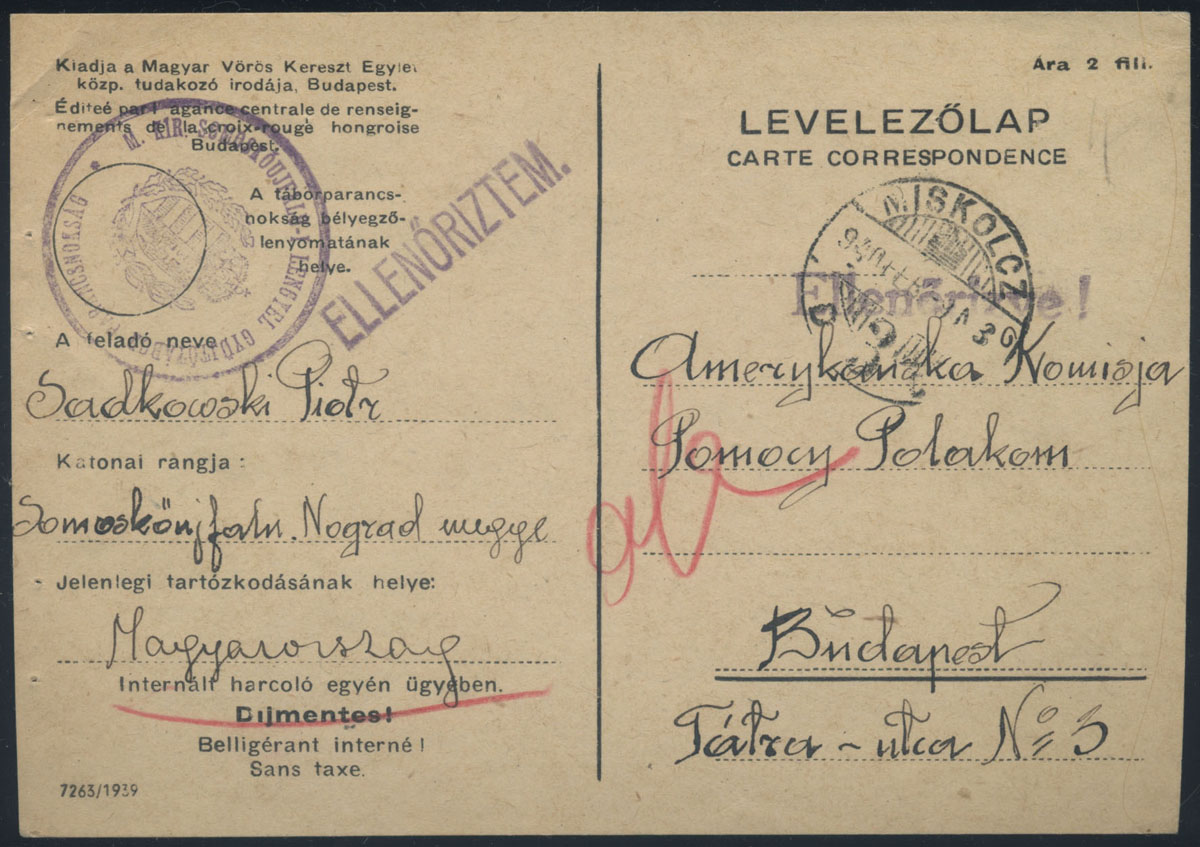 Kiadja a Magyar Vörös Kereszt Egylet
közp. tudakozó irodája, Budapest.
Éditeé par l' agance centrale de renseig-
nements de la croix-rouge hongroise
Budapest.
M. KIR. SOMOSKŐUJFALU-I LENGYEL GYÜJTŐTÁBOR PARANCSNOKSÁG
A táborparancs-
nokság bélyegző-
lenyomatának
helye.
ELLENŐRIZTEM.
A feladó neve
Sadkowski Piotr
Katonai rangja:
Somoskőujfalu. Nograd megye
Jelenlegi tartózkodásának helye:
Magyarország
Internált harcoló egyén ügyében.
Díjmentes!
Belligérant interné!
Sans taxe.
7263/1939
Ára 2 fill.
LEVELEZŐLAP
CARTE CORRESPONDENCE
MISKOLCZ
Ellenőrizve!
Amerykanska Komisja
Pomocy Polakom
Budapest
Tátra-utca No 3